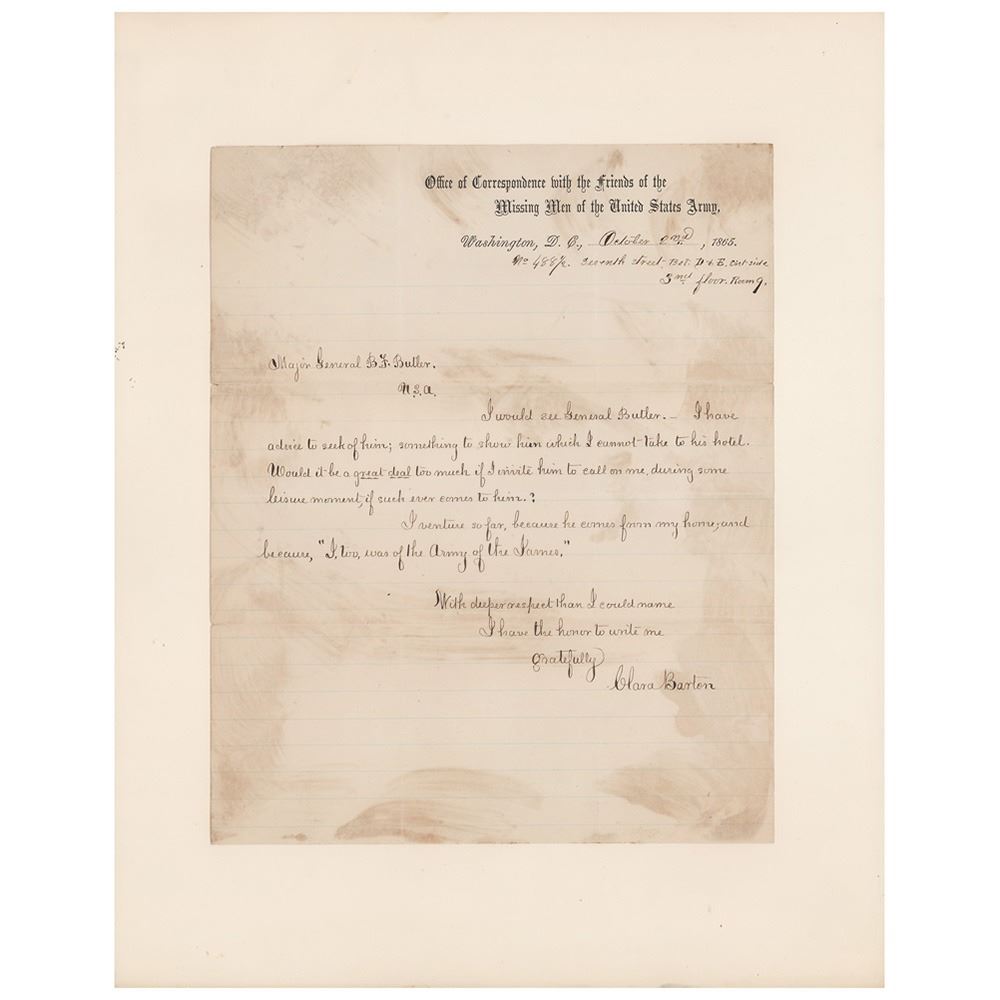 Office of Correspondence with the Friends of the
Missing Men of the United States Army,
Washington, D. C., October 2nd, 1865.
No 488½. Seventh street- Bet. D & E.
3rd floor. Room 9.
Major General B. F. Butler.
U.S.A.
I would see General Butler. — I have
advice to seek of him; something to show him which I cannot take to his hotel.
Would it be a great deal too much if I invite him to call on me, during some
leisure moment, if such ever comes to him.?
I venture so far, because he comes from my home; and
because, "I, too, was of the Army of the James."
With deeper respect than I could name
I have the honor to write me
gratefully
Clara Barton